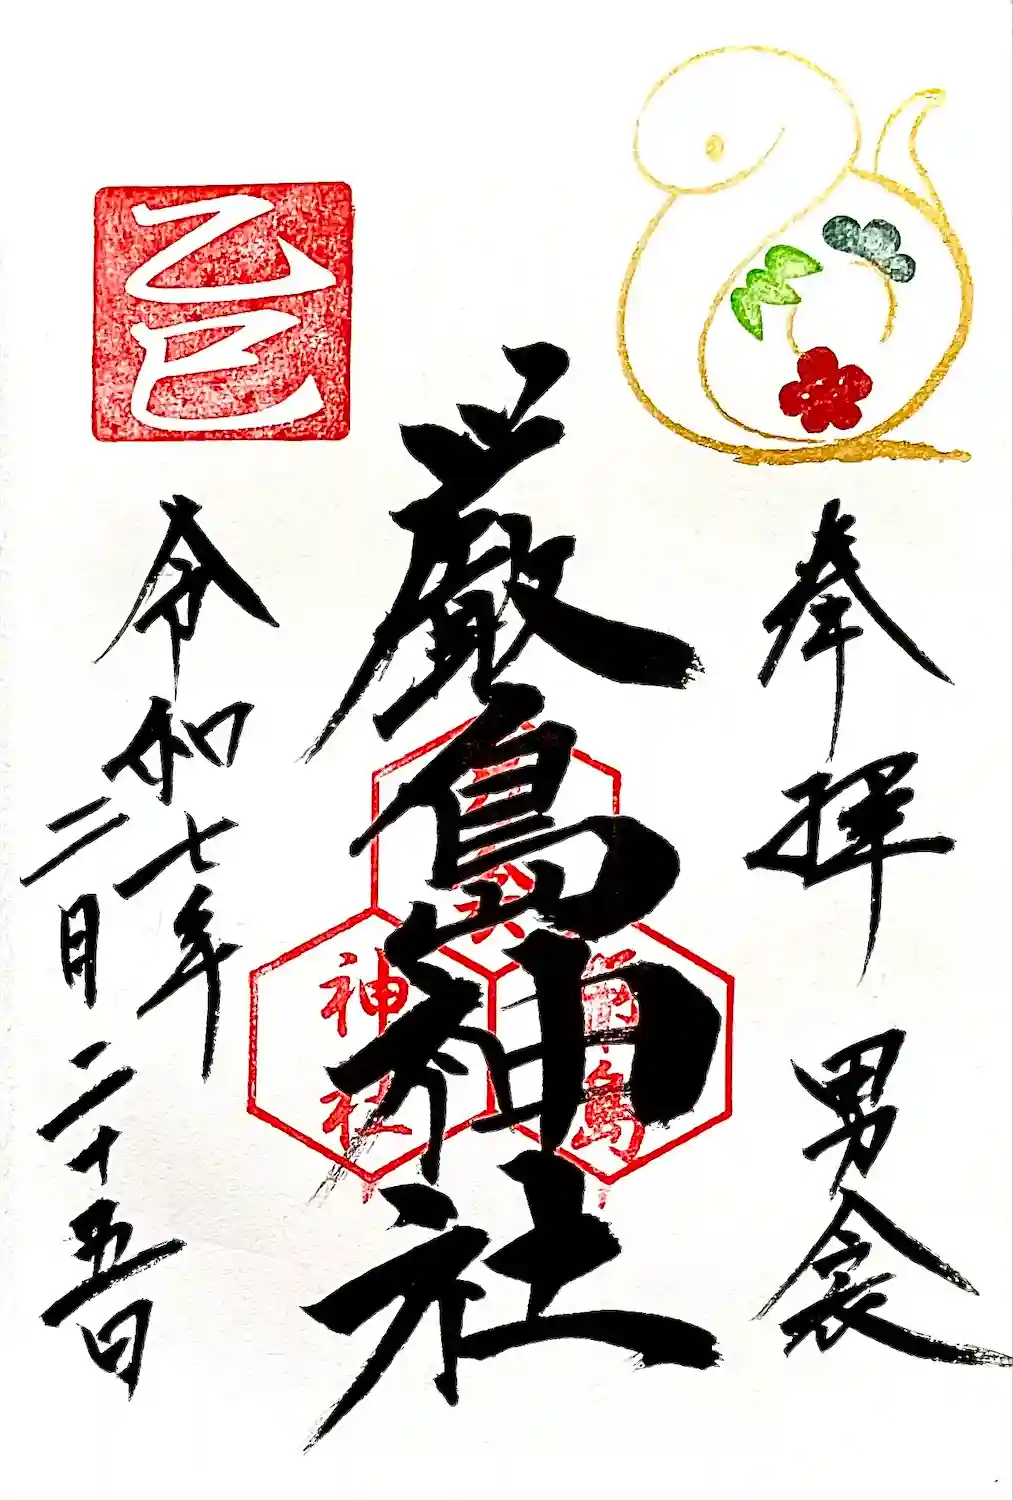 奉拝 男衾
厳島神社
乙巳
令和七年
二月二十五日
神社